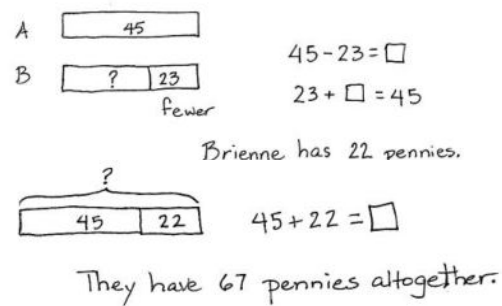 A 45
B ? 23
fewer
45 - 23 = □
23 + □ = 45
Brienne has 22 pennies.
?
45 22
45 + 22 = □
They have 67 pennies altogether.